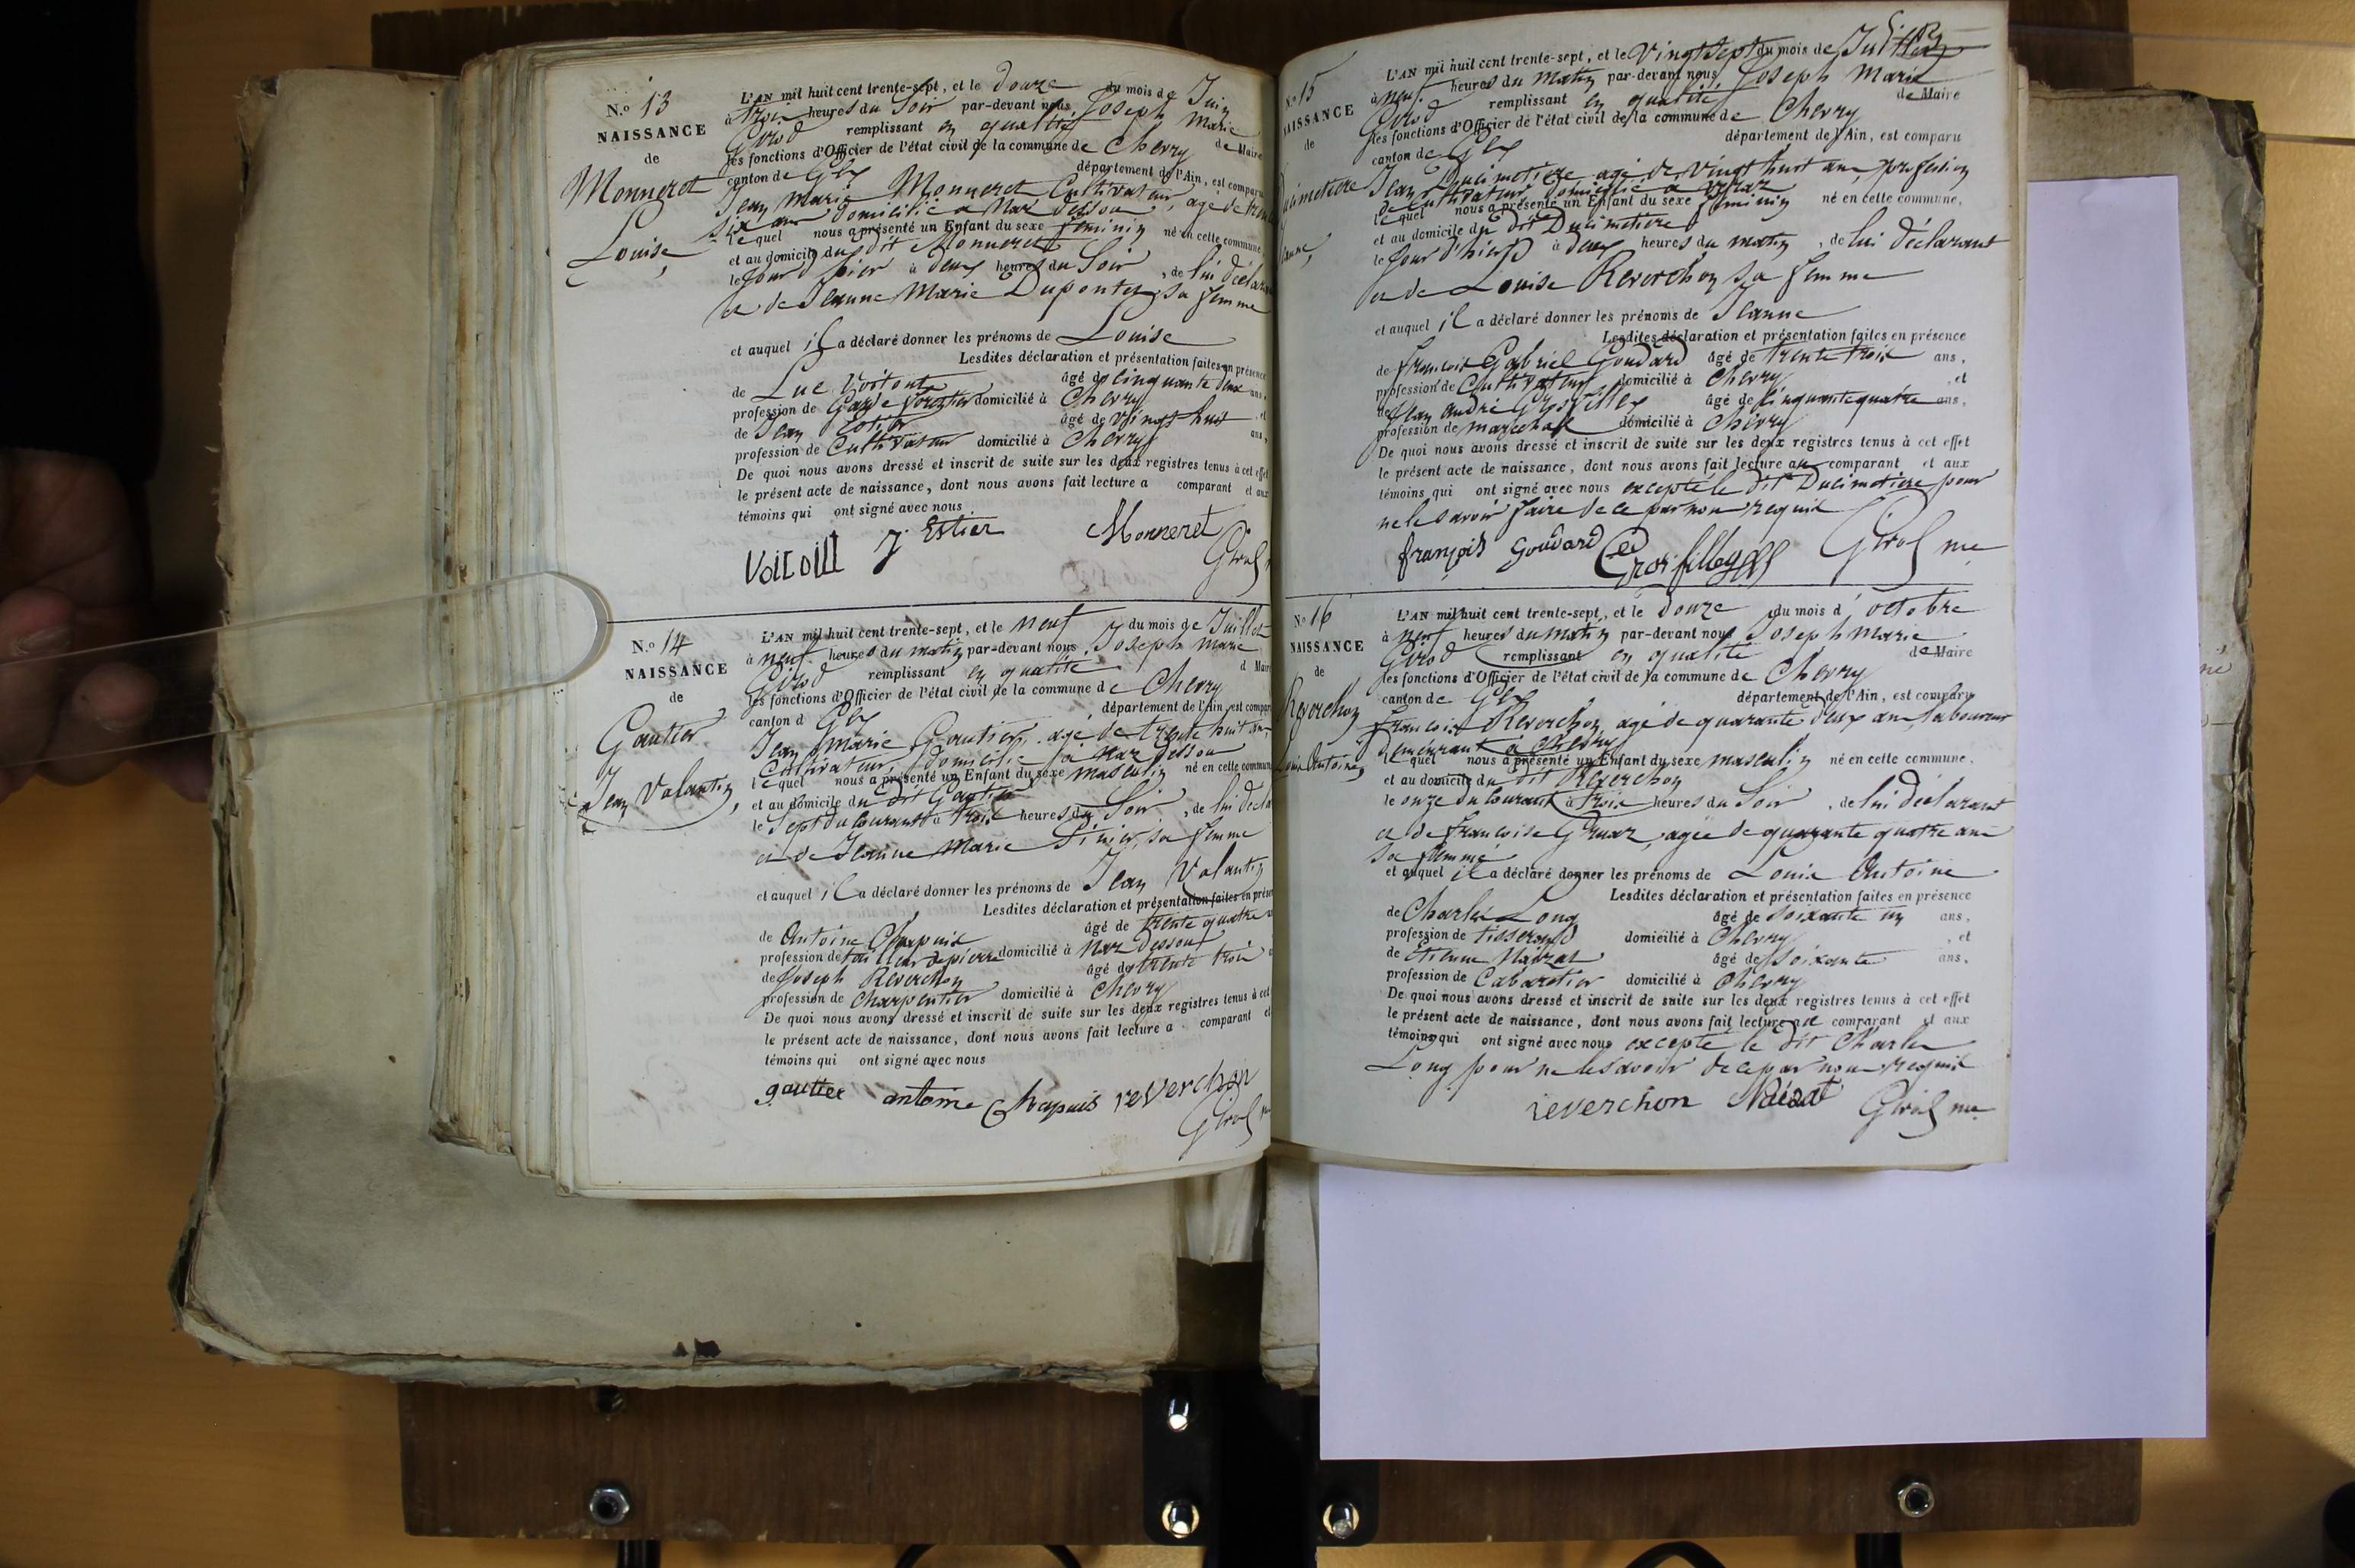 N.o 13
NAISSANCE
de
Monneret
Louise
L'AN mil huit cent trente-sept, et le douze du mois de Juin
à trois heures du Soir par-devant nous Joseph Marie
Girod remplissant en qualité de Maire
les fonctions d'Officier de l'état civil de la commune de Chevry
canton de Gex département de l'Ain, est comparu
Jean Marie Monneret Cultivateur, agé de
six ans domicilié a Naz Dessou
lequel nous a présenté un Enfant du sexe féminin né en cette commune,
et au domicile du dit Monneret
le jour d'hier à deux heures du Soir, de lui déclarant
et de Jeanne Marie Duponter sa femme
et auquel il a déclaré donner les prénoms de Louise
Lesdites déclaration et présentation faites en présence
de Luc âgé de cinquante deux ans,
profession de Garde forestier domicilié à Chevry et
de Jean Estier âgé de vingt huit ans,
profession de Cultivateur domicilié à Chevry
De quoi nous avons dressé et inscrit de suite sur les deux registres tenus à cet effet
le présent acte de naissance, dont nous avons fait lecture a comparant et aux
témoins qui ont signé avec nous
J Estier Monneret
Girod
N.o 14
NAISSANCE
de
Gautier
Jean Valantin,
L'AN mil huit cent trente-sept, et le neuf du mois de Juillet
à neuf heures du matin par-devant nous Joseph Marie
Girod remplissant en qualité d Maire
les fonctions d'Officier de l'état civil de la commune de Chevry
canton d Gex département de l'Ain, est comparu
Jean Marie Gautier, agé de trente huit ans
Cultivateur, domicilié a Naz Dessou
lequel nous a présenté un Enfant du sexe masculin né en cette commune
et au domicile du dit Gautier
le Sept du Courant à trois heures du Soir, de lui décla
et de Jeanne Marie sa femme
et auquel il a déclaré donner les prénoms de Jean Valantin
Lesdites déclaration et présentation faites en présen
de Antoine Chapuis âgé de trente quatre
profession de tailleur de pierre domicilié à Naz Dessou
de Joseph Reverchon âgé de trente trois
profession de Charpentier domicilié à Chevry
De quoi nous avons dressé et inscrit de suite sur les deux registres tenus à cet
le présent acte de naissance, dont nous avons fait lecture a comparant et
témoins qui ont signé avec nous
gautier antoine Chapuis reverchon
Girod
N.o 15
NAISSANCE
de
Ducimetiere
Jeanne,
L'AN mil huit cent trente-sept, et le Vingt Sept du mois de Juillet
à neuf heures du Matin par-devant nous Joseph Marie
Girod remplissant en qualité de Maire
les fonctions d'Officier de l'état civil de la commune de Chevry
canton de Gex département de l'Ain, est comparu
Jean Ducimetiere agé de vingt huit ans, profession
de Cultivateur domicilié a
lequel nous a présenté un Enfant du sexe féminin né en cette commune,
et au domicile du dit Ducimetiere
le Jour d'hier à deux heures du matin, de lui déclarant
et de Louise Reverchon sa femme
et auquel il a déclaré donner les prénoms de Jeanne
Lesdites déclaration et présentation faites en présence
de françois Gabriel Goudard âgé de trente trois ans,
profession de Cultivateur domicilié à Chevry, et
de Jean andré Grosfilley âgé de Cinquante quatre ans,
profession de marechale domicilié à Chevry
De quoi nous avons dressé et inscrit de suite sur les deux registres tenus à cet effet
le présent acte de naissance, dont nous avons fait lecture au comparant et aux
témoins qui ont signé avec nous excepté le dit Ducimetiere pour
ne le savoir faire de ce par nous requis
françois Goudard Grosfilley Girod me
N.o 16
NAISSANCE
de
Reverchon
Louis Antoine,
L'AN mil huit cent trente-sept, et le douze du mois d'octobre
à neuf heures du matin par-devant nous Joseph Marie
Girod remplissant en qualité de Maire
les fonctions d'Officier de l'état civil de la commune de Chevry
canton de Gex département de l'Ain, est comparu
François Reverchon, agé de quarante deux ans, laboureur
demeurant à Chevry
lequel nous a présenté un Enfant du sexe masculin né en cette commune,
et au domicile du dit Reverchon
le onze du Courant à trois heures du Soir, de lui déclarant
et de françoise Gruaz, agée de quarante quatre ans
Sa femme
et auquel il a déclaré donner les prénoms de Louis Antoine
Lesdites déclaration et présentation faites en présence
de Charles Long âgé de soixante un ans,
profession de tisserand domicilié à Chevry, et
de Etienne âgé de soixante ans,
profession de Cabaretier domicilié à Chevry
De quoi nous avons dressé et inscrit de suite sur les deux registres tenus à cet effet
le présent acte de naissance, dont nous avons fait lecture au comparant et aux
témoins qui ont signé avec nous excepté le dit Charles
Long pour ne le savoir de ce par nous requis
reverchon Girod me